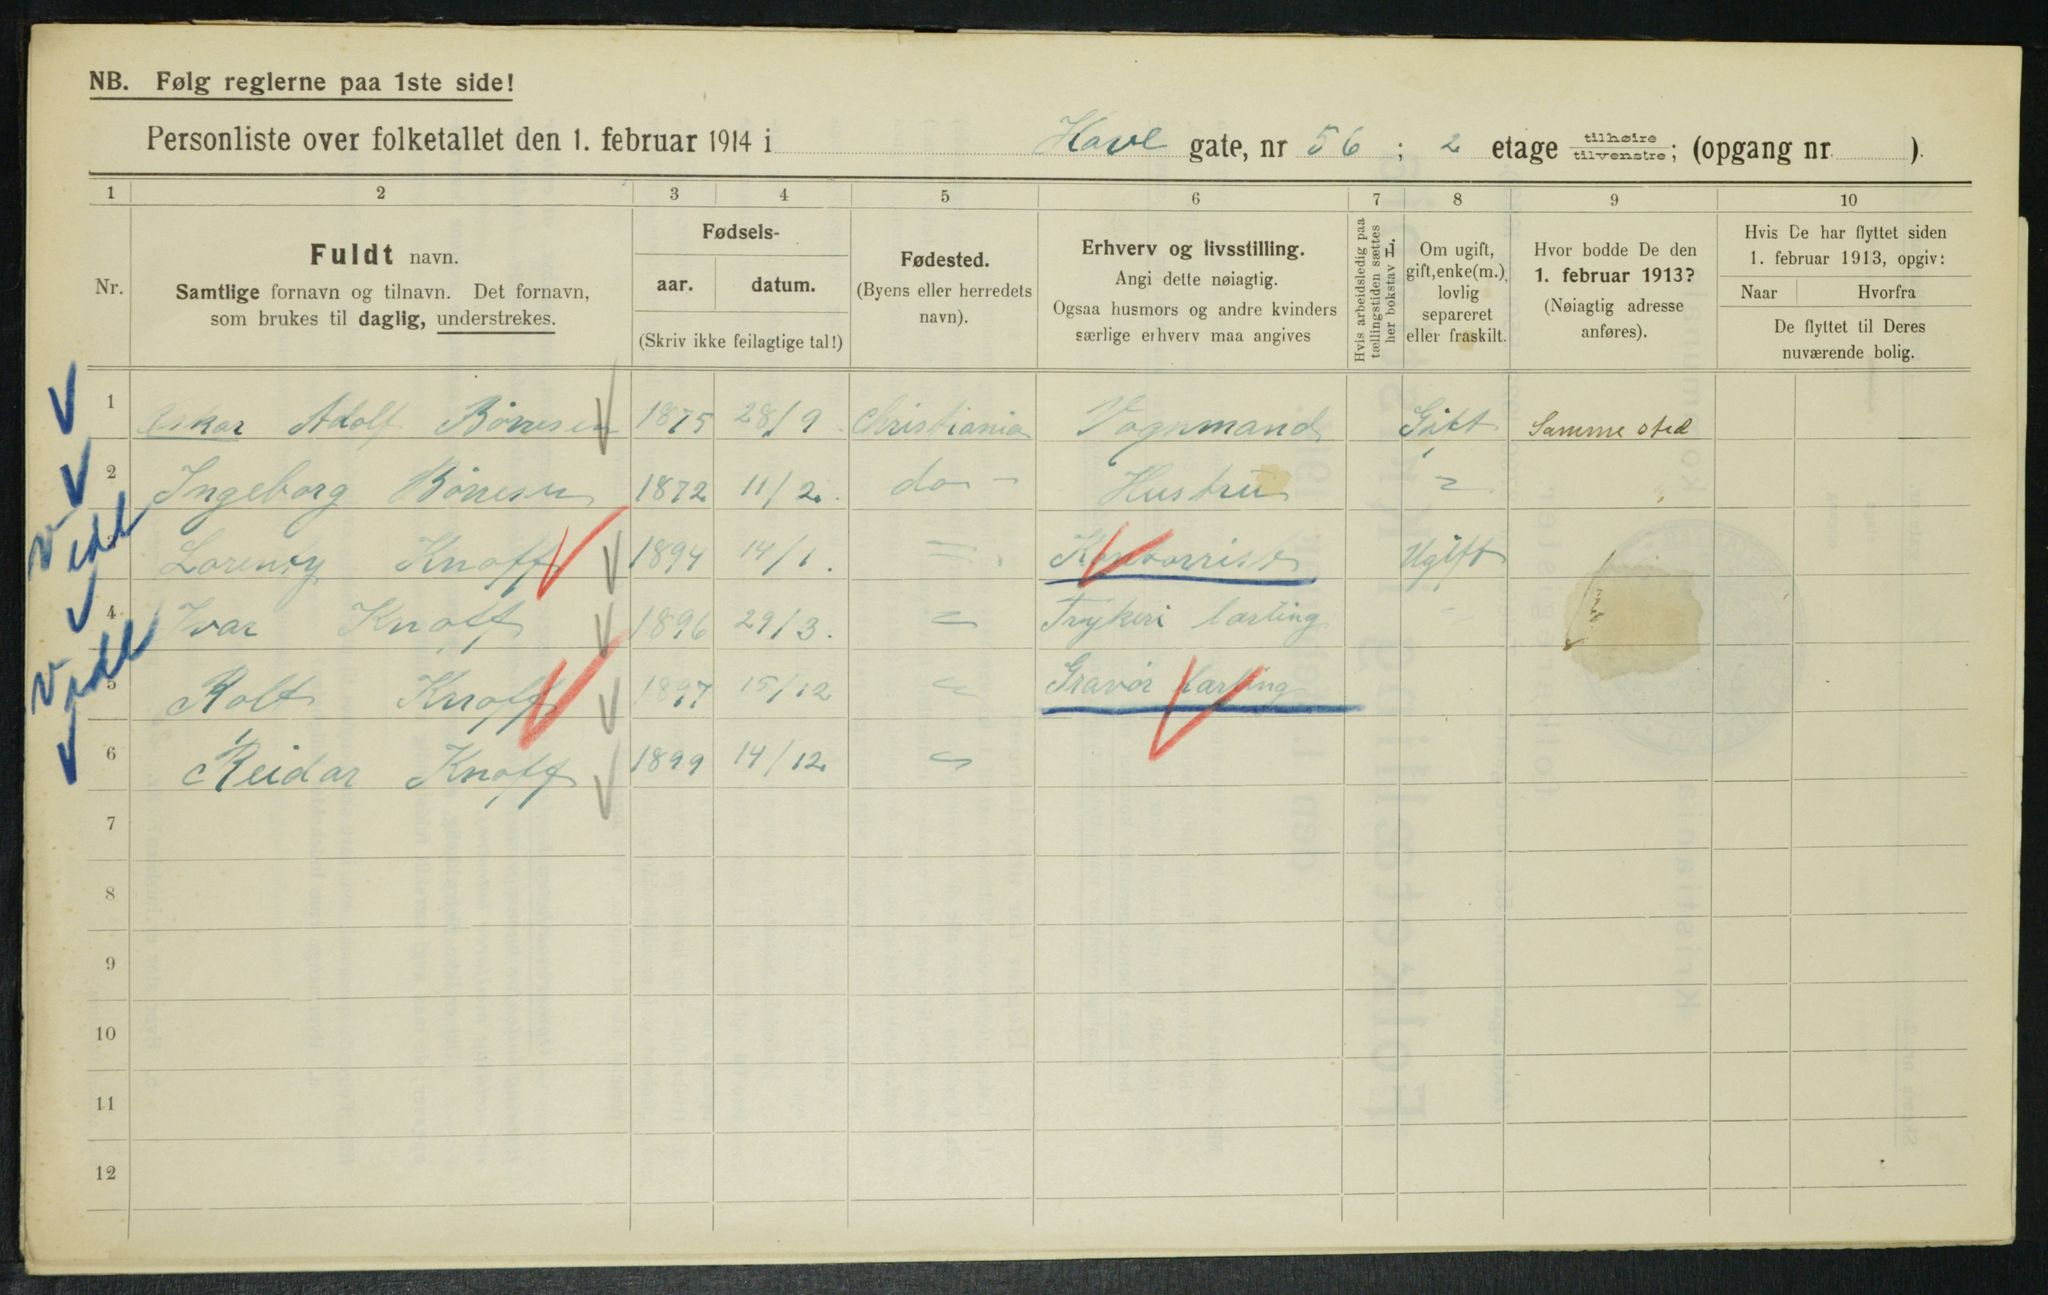 NB. Følg reglerne paa 1ste side!
Personliste over folketallet den 1. februar 1914 i Have gate, nr 56 ; 2 etage tilhøire tilvenstre; (opgang nr ).
1 2 3 4 5 6 7 8 9 10
Nr.
Fuldt navn.
Samtlige fornavn og tilnavn. Det fornavn,
som brukes til daglig, understrekes.
Fødsels-
aar. datum.
(Skriv ikke feilagtige tal!)
Fødested.
(Byens eller herredets
navn).
Erhverv og livsstilling.
Angi dette nøiagtig.
Ogsaa husmors og andre kvinders
særlige erhverv maa angives
Hvis arbeidsledig paa
tællingstiden sættes
her bokstav L.
Om ugift,
gift, enke(m.),
lovlig
separeret
eller fraskilt.
Hvor bodde De den
1. februar 1913?
(Nøiagtig adresse
anføres).
Hvis De har flyttet siden
1. februar 1913, opgiv:
Naar Hvorfra
De flyttet til Deres
nuværende bolig.
1 Oskar Adolf Børresen 1875 28/9 Christiania Vognmand Gift Samme sted
2 Ingeborg Børresen 1872 11/2. do - Hustru "
Lorenty Knoff 1894 14/1. " Kontorrist Ugift
4 Ivar Knoff 1896 29/3. " Trykeri lærling "
5 Rolf Knoff 1897 15/12 " Gravør lærling
6 Reidar Knoff 1899 14/12 "
7
8
9
10
11
12